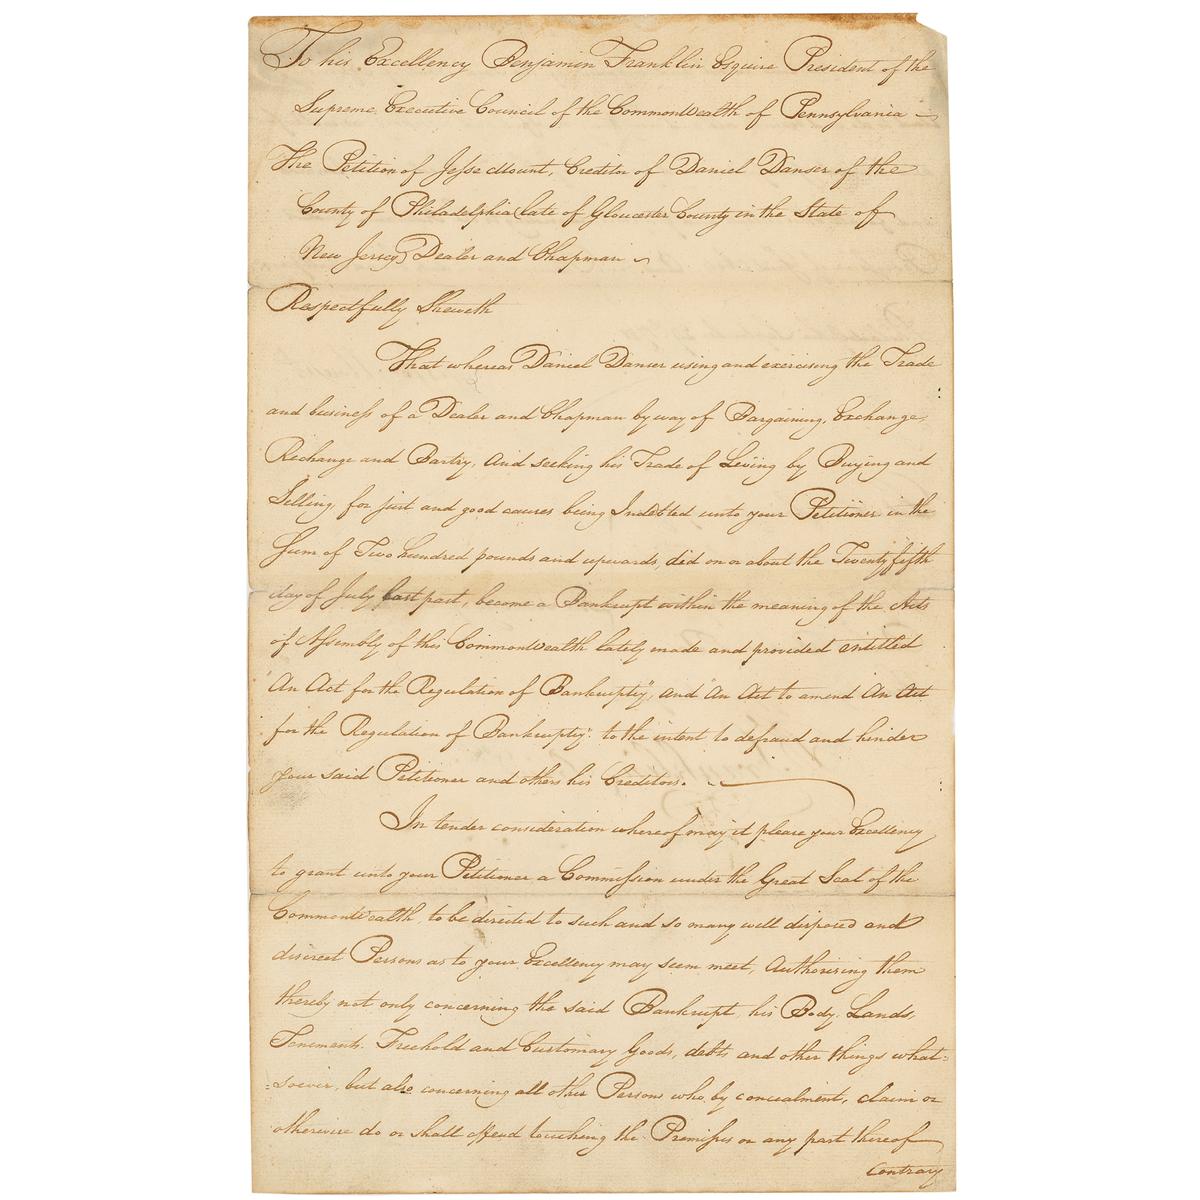 To his Excellency Benjamin Franklin Esquire President of the
Supreme Executive Council of the CommonWealth of Pennsylvania
The Petition of Jesse Mount, Creditor of Daniel Danser of the
County of Philadelphia (late of Gloucester County in the State of
New Jersey) Dealer and Chapman
Respectfully Sheweth
That whereas Daniel Danser using and exercising the Trade
and business of a Dealer and Chapman by way of Bargaining, Exchange,
Rechange and Bartry, And seeking his Trade of Living by Buying and
Selling, for just and good causes being Indebted unto your Petitioner in the
Sum of Two hundred pounds and upwards, did on or about the Twenty fifth
day of July last past, become a Bankrupt within the meaning of the Acts
of Assembly of this CommonWealth lately made and provided entitled
"An Act for the Regulation of Bankruptcy", and "An Act to amend An Act
for the Regulation of Bankruptcy" to the intent to defraud and hinder
your said Petitioner and others his Creditors.
In tender consideration whereof may it please your Excellency
to grant unto your Petitioner a Commission under the Great Seal of the
CommonWealth, to be directed to such and so many well disposed and
discreet Persons as to your Excellency may seem meet, Authorising them
thereby not only concerning the said Bankrupt, his Body, Lands,
Tenements, Freehold and Customary Goods, debts and other things what=
=soever, but also concerning all other Persons who, by concealment, claim or
otherwise do or shall offend touching the Premises or any part thereof
Contrary